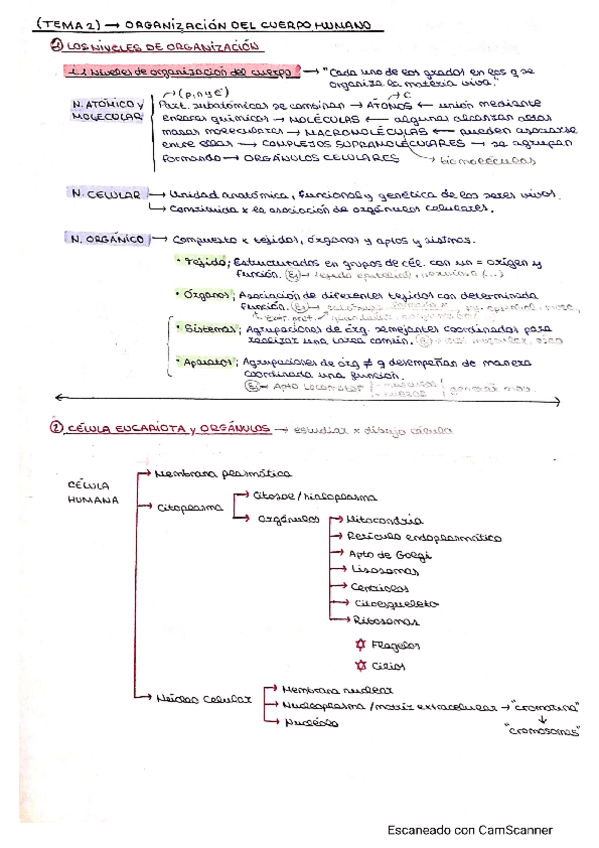 (TEMA 2) → ORGANIZACIÓN DEL CUERPO HUMANO
① LOS NIVELES DE ORGANIZACIÓN
1.1 Niveles de organización del cuerpo → "Cada uno de los grados en los q se
organiza la materia viva."
(p,n y e⁻)
N. ATÓMICO y MOLECULAR
Part. subatómicas se combinan → ÁTOMOS ← unión mediante
enlaces químicos → MOLÉCULAS ← algunas alcanzan altas
masas moleculares → MACROMOLÉCULAS ← pueden asociarse
entre ellas → COMPLEJOS SUPRAMOLECULARES → se agrupan
formando → ORGÁNULOS CELULARES
biomoléculas
N. CELULAR → Unidad anatómica, funcional y genética de los seres vivos.
→ Constituida x la asociación de orgánulos celulares.
N. ORGÁNICO → Compuesto x tejidos, órganos y aptos y sistmas.
• Tejido; Estructurados en grupos de cél. con un = origen y
función. (Ej) → tejido epitelial, nervioso (...)
• Órganos; Asociación de diferentes tejidos con determinada
función. (Ej)
• Sistemas; Agrupaciones de órg. semejantes coordinados para
realizar una tarea común.
• Aparatos; Agrupaciones de órg ≠ q desempeñan de manera
coordinada una función.
(Ej) → Apto Locomotor
② CÉLULA EUCARIOTA y ORGÁNULOS → estudiar x dibujo célula
CÉLULA HUMANA
→ Membrana plasmática
→ Citoplasma
→ Citosol/hialoplasma
→ Orgánulos
→ Mitocondria
→ Retículo endoplasmático
→ Apto de Golgi
→ Lisosomas
→ Centriolos
→ Citoesqueleto
→ Ribosomas
✡ Flagelos
✡ Cilios
→ Núcleo Celular
→ Membrana nuclear
→ Nucleoplasma/matriz extracelular → "cromatina"
↓
"cromosomas"
→ Nucléolo
Escaneado con CamScanner